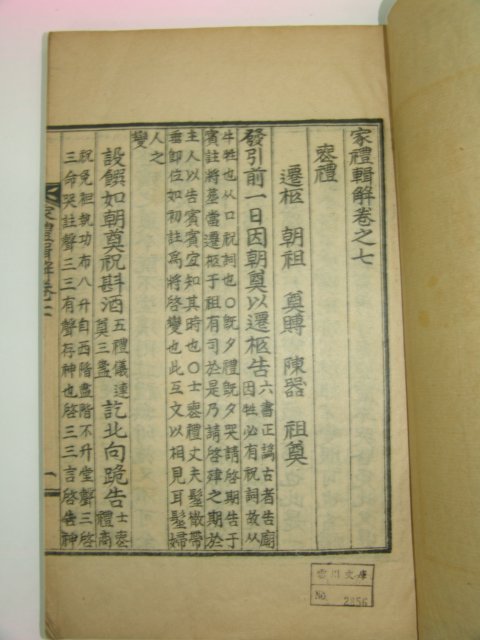 家禮輯解卷之七
喪禮
遷柩 朝祖 奠賻 陳器 祖奠
發引前一日因朝奠以遷柩告六書正譌古者告廟
因牲必有祝詞故从
牛牲也从口祝詞也○旣夕禮旣夕哭請啓期告于
賓註將葬當遷柩于祖有司於是乃請啓肂之期於
主人以告賓賓宜知其時也○士喪禮丈夫髽散帶
垂卽位如初註爲將啓變也此互文以相見耳髽婦
人之
變
設饌如朝奠祝斟酒五禮儀連
奠三盞訖北向跪告士喪
禮商
祝免袒執功布入升自西階盡階不升堂聲三啓
三命哭註聲三三有聲存神也啓三三言啓告神
家禮輯解卷七
一
雲川文庫
No. 2256